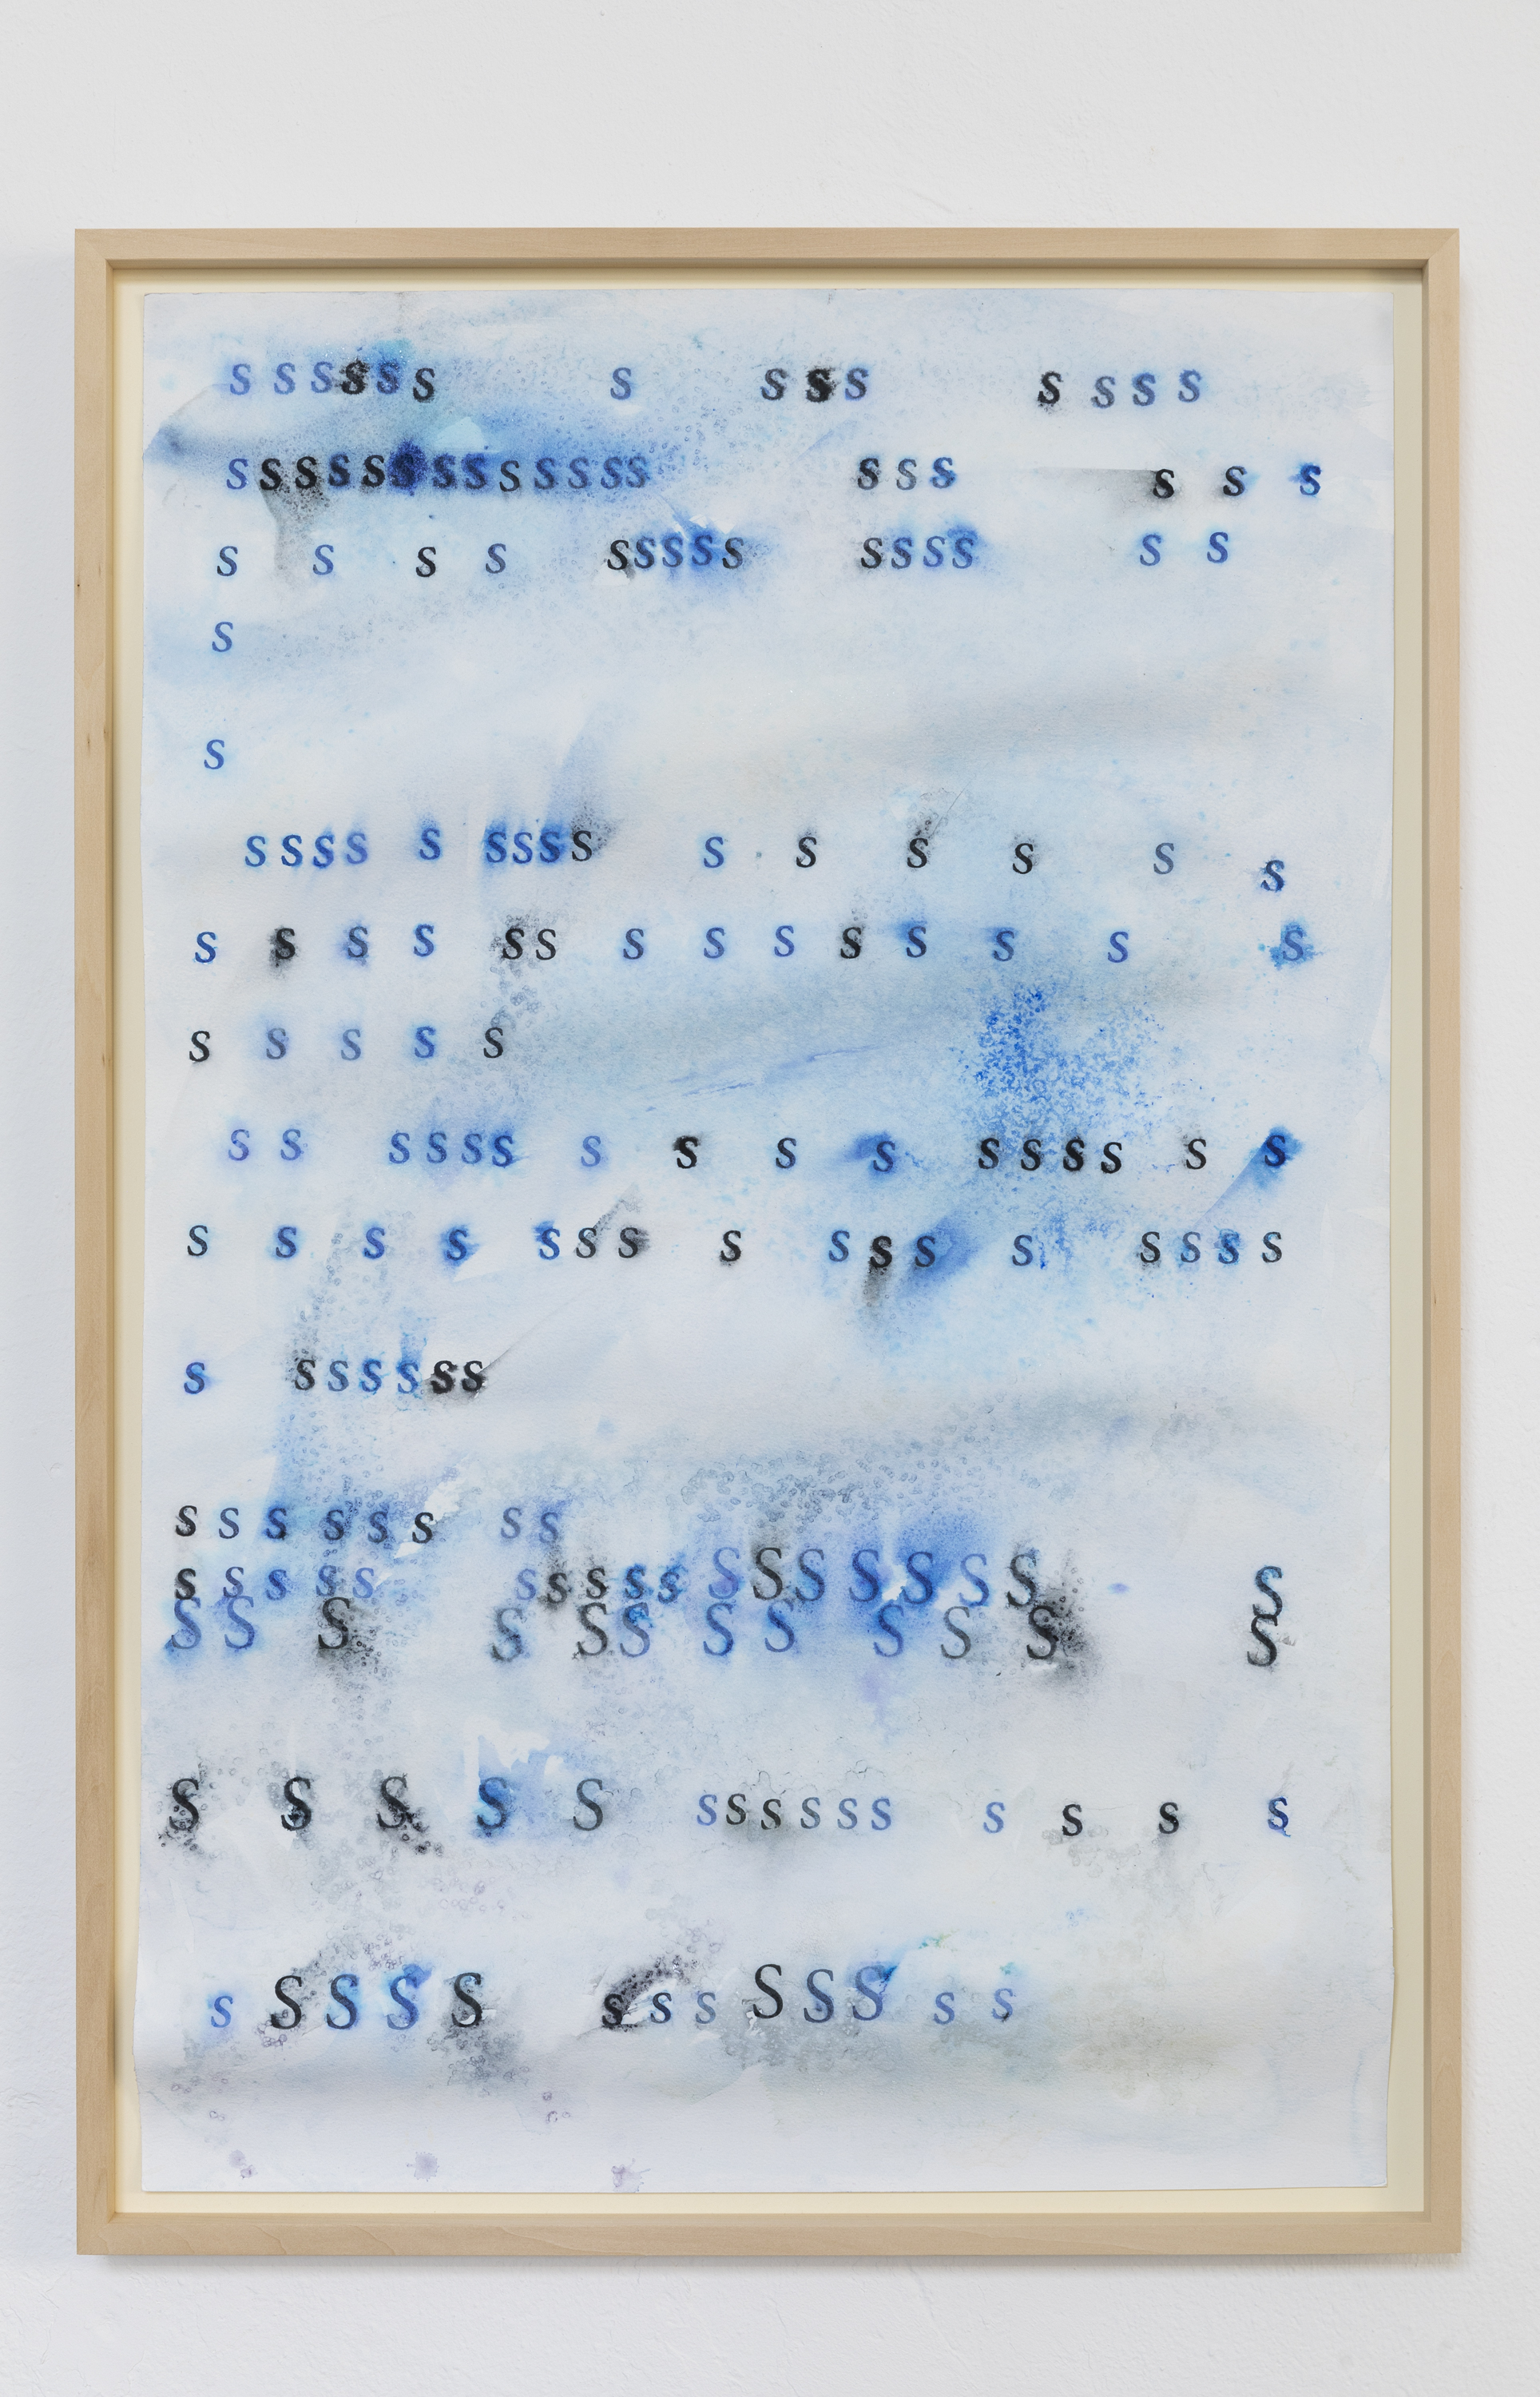 ssssss s sss ssss
sssssssssssss sss s s s
s s s s sssss ssss s s
s
s
ssss s ssss s s s s s s
s s s s ss s s s s s s s s
s s s s s
s s ssss s s s s ssss s s
s s s s sss s sss s ssss
s ssssss
s s s s s s ss
s s s s s sssss SSSSSSS S
S S S S SS S S S S S S
S S S S S ssssss s s s s
s SSSS s s s SSS s s